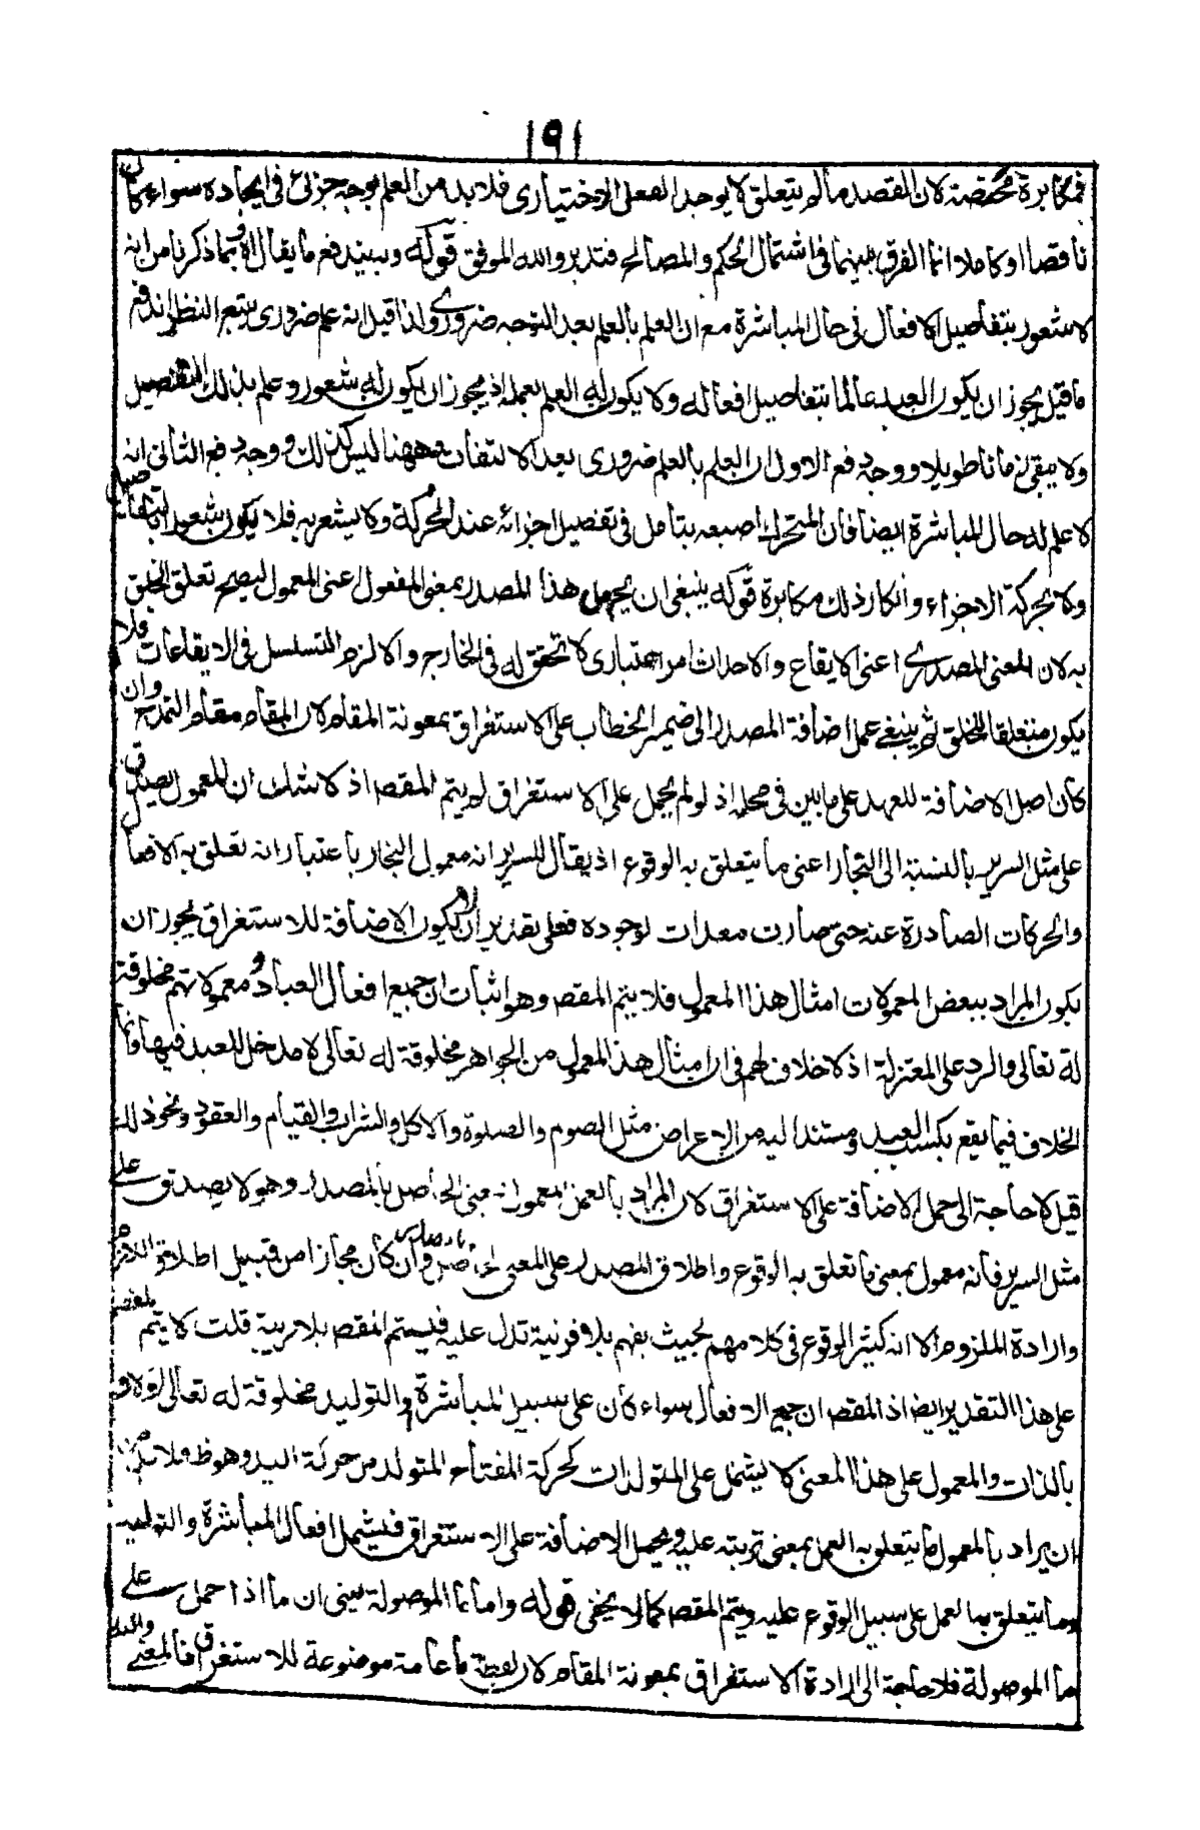 ١٩١
فمكابرة محضة لان القصد مالم يتعلق لا يوجد الفعل الاختياري فلا بد من العلم بوجه جزئى في ايجاده سواء كان
ناقصا او كاملا انما الفرق بينهما في اشتمال الحكم والمصالح فتدبر والله الموفق قوله وبه يندفع ما يقال اه وبما ذكرنا من انه
لا شعور بتفاصيل الافعال في حال المباشرة مع ان العلم بالعلم بعد التوجه ضروري ولذا قيل انه علم ضروري يتبع النظر اندفع
ما قيل يجوز ان يكون العبد عالما بتفاصيل افعاله ولا يكون له العلم بعمله اذ يجوز ان يكون له شعور وعلم بذلك التفصيل
ولا يبقى زمانا طويلا ووجه دفع الاول ان العلم بالعلم ضروري بعد الالتفات وههنا ليس كذلك ووجه دفع الثاني انه
لا علم له حال المباشرة ايضا فان المتحرك اصبعه يتامل في تفصيل اجزائه عند الحركة ولا يشعر به فلا يكون شعور بتفاصيل
ولا بحركة الاجزاء وانكار ذلك مكابرة قوله ينبغي ان يجعل هذا المصدر بمعنى المفعول اعنى المعمول ليصح تعلق الخلق
به لان المعنى المصدري اعنى الايقاع والاحداث امر اعتباري لا تحقق له في الخارج والا لزم التسلسل في الايقاعات فلا
يكون متعلقا للخلق ثم ينبغي عمل اضافة المصدر الى ضمير الخطاب على الاستغراق بمعونة المقام لان المقام مقام التمدح وان
كان اصل الاضافة للعهد على ما بين في محله اذ لو لم يحمل على الاستغراق لم يتم المقصد اذ لا شك ان المعمول يصدق
على مثل السرير بالنسبة الى النجار اعنى ما يتعلق به الوقوع اذ يقال للسرير انه معمول النجار باعتبار انه تعلق به الافعال
والحركات الصادرة عنه حتى صارت معدات لوجوده فعلى تقدير ان لا يكون الاضافة للاستغراق يجوز ان
يكون المراد ببعض المعمولات امثال هذا المعمول فلا يتم المقصد وهو اثبات ان جميع افعال العباد ومعمولاتهم مخلوقة
له تعالى والرد على المعتزلة اذ لا خلاف لهم في ان امثال هذا المعمول من الجواهر مخلوقة له تعالى لا مدخل للعبد فيها وانما
الخلاف فيما يقع بكسب العبد ومستندا اليه من الاعراض مثل الصوم والصلوة والاكل والشراب والقيام والعقود ونحو ذلك
قيل لا حاجة الى حمل الاضافة على الاستغراق لان المراد بالعمل المعمول بمعنى الحاصل بالمصدر وهو لا يصدق على
مثل السرير فانه معمول بمعنى ما تعلق به الوقوع واطلاق المصدر على المعنى الحاصل بالمصدر وان كان مجازا من قبيل اطلاق اللازم
وارادة الملزوم الا انه كثير الوقوع في كلامهم بحيث يفهم بلا قرينة تدل عليه فيتم المقصد بلا ريبة قلت لا يتم المقصد
على هذا التقدير ايضا اذ المقصد ان جميع الافعال سواء كان على سبيل المباشرة والتوليد مخلوقة له تعالى اولا و
بالذات والمعمول على هذا المعنى لا يشمل على المتولدات كحركة المفتاح المتولد من حركة اليد وهو ظ فلا بد من
ان يراد بالمعمول ما يتعلق به العمل بمعنى ترتبه عليه ويحمل الاضافة على الاستغراق فيشمل افعال المباشرة والتوليد
وما يتعلق بها العمل على سبيل الوقوع عليه ويتم المقصد كما لا يخفى قوله واما ما الموصولة يعنى ان ما اذا حمل على
ما الموصولة فلا حاجة الى ارادة الاستغراق بمعونة المقام لان لفظة ما عامة موضوعة للاستغراق فالمعنى والله